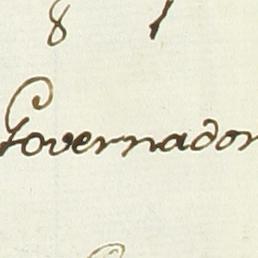 8 1
Governador